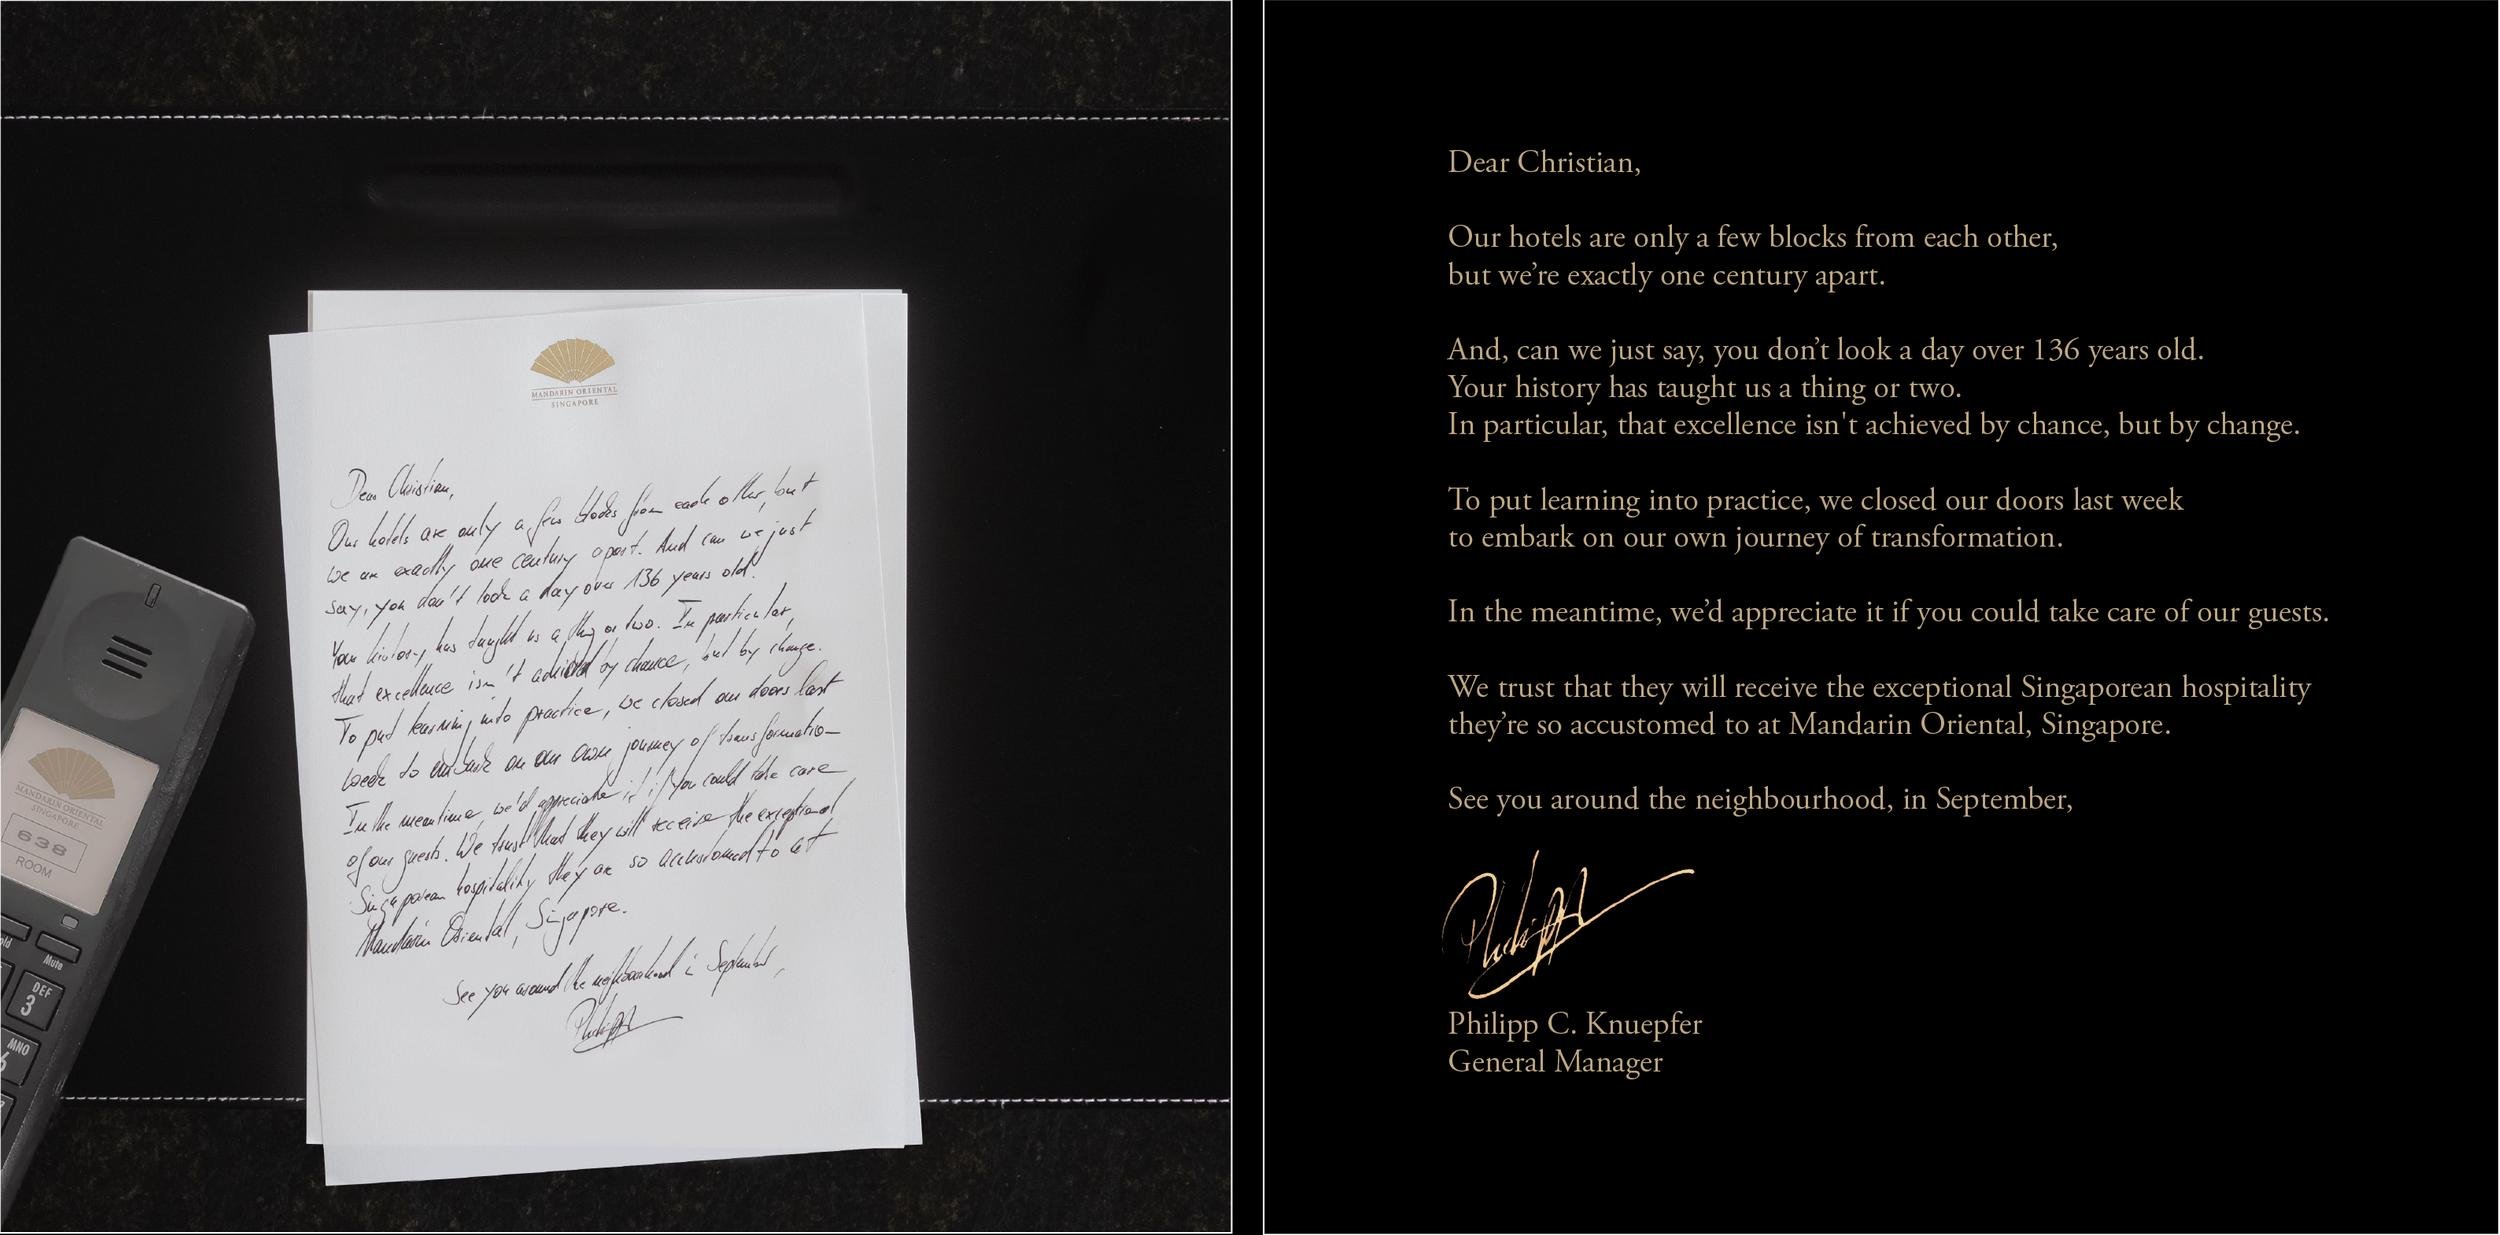 MANDARIN ORIENTAL
SINGAPORE
Dear Christian,
Our hotels are only a few blocks from each other, but
we are exactly one century apart. And can we just
say, you don't look a day over 136 years old.
Your history has taught us a thing or two. In particular,
that excellence isn't achieved by chance, but by change.
To put learning into practice, we closed our doors last
week to embark on our own journey of transformation
In the meantime, we'd appreciate it if you could take care
of our guests. We trust that they will receive the exceptional
Singaporean hospitality they are so accustomed to at
Mandarin Oriental, Singapore.
See you around the neighbourhood in September,
Philipp
MANDARIN ORIENTAL
SINGAPORE
638
ROOM
old
Mute
DEF
3
MNO
6
Dear Christian,
Our hotels are only a few blocks from each other,
but we’re exactly one century apart.
And, can we just say, you don’t look a day over 136 years old.
Your history has taught us a thing or two.
In particular, that excellence isn't achieved by chance, but by change.
To put learning into practice, we closed our doors last week
to embark on our own journey of transformation.
In the meantime, we’d appreciate it if you could take care of our guests.
We trust that they will receive the exceptional Singaporean hospitality
they’re so accustomed to at Mandarin Oriental, Singapore.
See you around the neighbourhood, in September,
Philipp
Philipp C. Knuepfer
General Manager